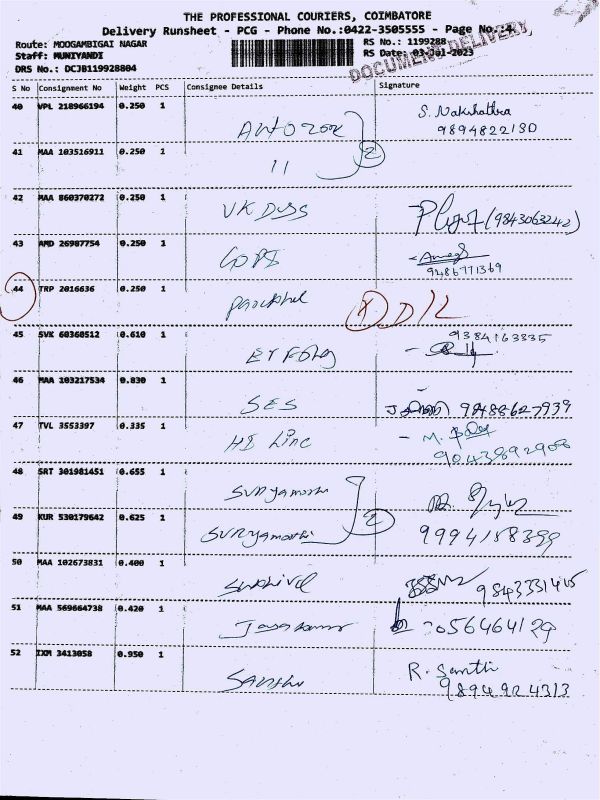 THE PROFESSIONAL COURIERS, COIMBATORE
Delivery Runsheet - PCG - Phone No.:0422-3505555 - Page No.:4
Route: MOOGAMBIGAI NAGAR
RS No.: 1199288
Staff: MUNIYANDI
RS Date: 03-Jul-2023
DRS No.: DCJB119928804
DOCUMENT DELIVERY
S No Consignment No Weight PCS Consignee Details Signature
40 VPL 218966194 0.250 1 S. Nakshathra
9894822130
41 MAA 103516911 0.250 1 11 2
42 MAA 860370272 0.250 1 (9843063242)
43 AMD 26987754 0.250 1 GOPI
9486771369
44 TRP 2016636 0.250 1 D/L
45 SVK 60360512 0.610 1 9384163335
46 MAA 103217534 0.830 1 SES 9488627939
47 TVL 3553397 0.335 1 HI Line
9043892908
48 SRT 301981451 0.655 1 Suryamorthi
49 KUR 530179642 0.625 1 Suryamorthi 2 9994188399
50 MAA 102673831 0.400 1
51 MAA 569664738 0.420 1 Jayakumar
52 IXM 3413058 0.950 1 R. Santhi
9894924313